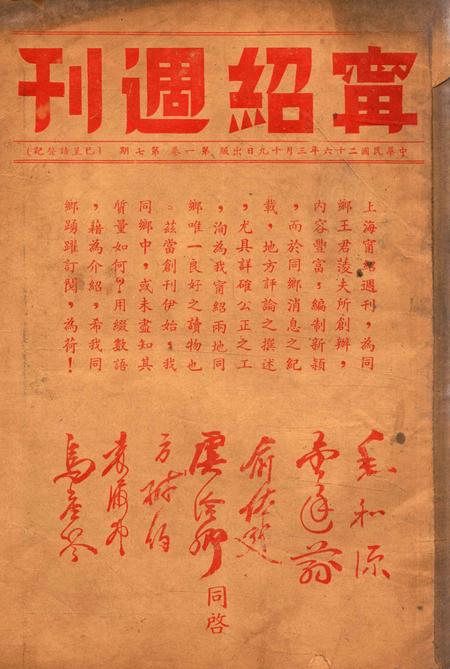 甯紹週刊
中華民國二十六年三月十九日出版 第一卷 第七期 (已呈請登記)
上海甯紹週刊，為同
鄉王君蓤夫所創辦，
內容豐富，編制新穎
，而於同鄉消息之紀
載，地方評論之撰述
，尤具詳確公正之工
，洵為我甯紹兩地同
鄉唯一良好之讀物也
。茲當創刊伊始，我
同鄉中，或未盡知其
質量如何？用綴數語
，藉為介紹，希我同
鄉踴躍訂閱，為荷！
毛和源
金廷蓀
俞佐庭
虞洽卿
方椒伯
袁履登
烏崖琴
同啓